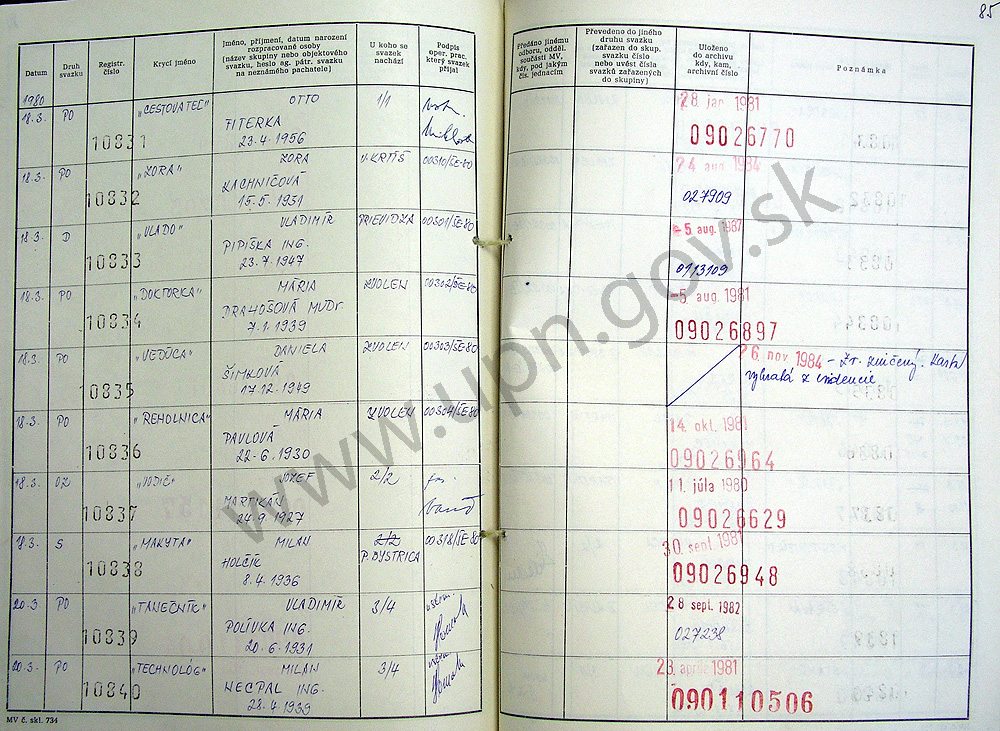 85
Datum
Druh svazku
Registr. číslo
Krycí jméno
Jméno, příjmení, datum narození
rozpracované osoby
(název skupiny nebo objektového
svazku, heslo ag. pátr. svazku
na neznámého pachatele)
U koho se
svazek
nachází
Podpis
oper. prac.
který svazek
přijal
Předáno jinému
odboru, odděl.
součásti MV,
kdy, pod jakým
čís. jednacím
Převedeno do jiného
druhu svazku
(zařazen do skup.
svazku číslo
nebo uvést čísla
svazků zařazených
do skupiny)
Uloženo
do archivu
kdy, kam,
archivní číslo
Poznámka
1980
18.3. PO 10831 „CESTOVATEĽ" OTTO 1/1 28. jan. 1981
FITERKA
23.4.1956 09026770
18.3. PO 10832 „ZORA" ZORA V. KRTÍŠ 00310/ŠE-80 24 aug. 1984
KACHNIČOVÁ
15.5.1931 027909
18.3. D 10833 „VLADO" VLADIMÍR PRIEVIDZA 00301/ŠE-80 -5. aug. 1987
PIPIŠKA ING.
23.7.1947 0113109
18.3. PO 10834 „DOKTORKA" MÁRIA ZVOLEN 00302/ŠE-80 -5. aug. 1981
DRAHOŠOVÁ MUDr.
7.1.1939 09026897
18.3. PO 10835 „VEDÚCA" DANIELA ZVOLEN 00303/ŠE-80 26. nov. 1984 – Zv. zničený. Karta
ŠIMKOVÁ vybratá z evidencie
17.12.1949
18.3. PO 10836 „REHOLNICA" MÁRIA ZVOLEN 00304/ŠE-80 14. okt. 1981
PAVLOVÁ
22.6.1930 09026964
18.3. 10837 „VODIČ" JOZEF 2/2 11. júla 1980
MARTIKÁN
24.9.1927 09026629
18.3. S 10838 „MAKYTA" MILAN 2/2 00318/ŠE-80 30. sept. 1981
HOLČÍK P. BYSTRICA
8.4.1936 09026948
20.3 PO 10839 „TANEČNÍK" VLADIMÍR 3/4 28 sept. 1982
POLÍVKA ING.
20.6.1931 027238
20.3. PO 10840 „TECHNOLÓG" MILAN 3/4 23. apríla 1981
NECPAL ING.
28.4.1939 090110506
MV č. skl. 734
www.upn.gov.sk